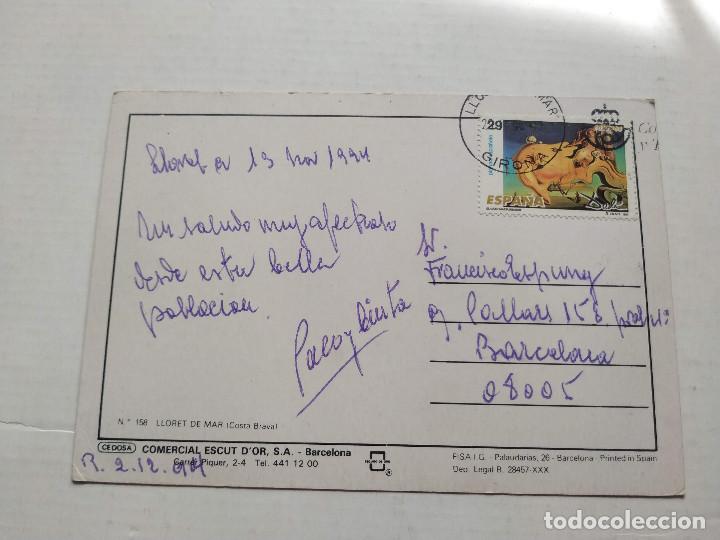 LLORET DE MAR
GIRONA
29
ESPAÑA
Lloret a 13 Nov 1994
Un saludo muy afectuoso
desde esta bella
poblacion.
Paco y
Sr.
Francisco Espuny
c/. Pallars 158
Barcelona
08005
N.° 158 LLORET DE MAR (Costa Brava)
CEDOSA COMERCIAL ESCUT D'OR, S.A. - Barcelona
Carré Piquer, 2-4 Tel. 441 12 00
FISA I.G. - Palaudarias, 26 - Barcelona - Printed in Spain
Dep. Legal B. 28457-XXX
R. 2.12.94
todocoleccion
todocoleccion.net